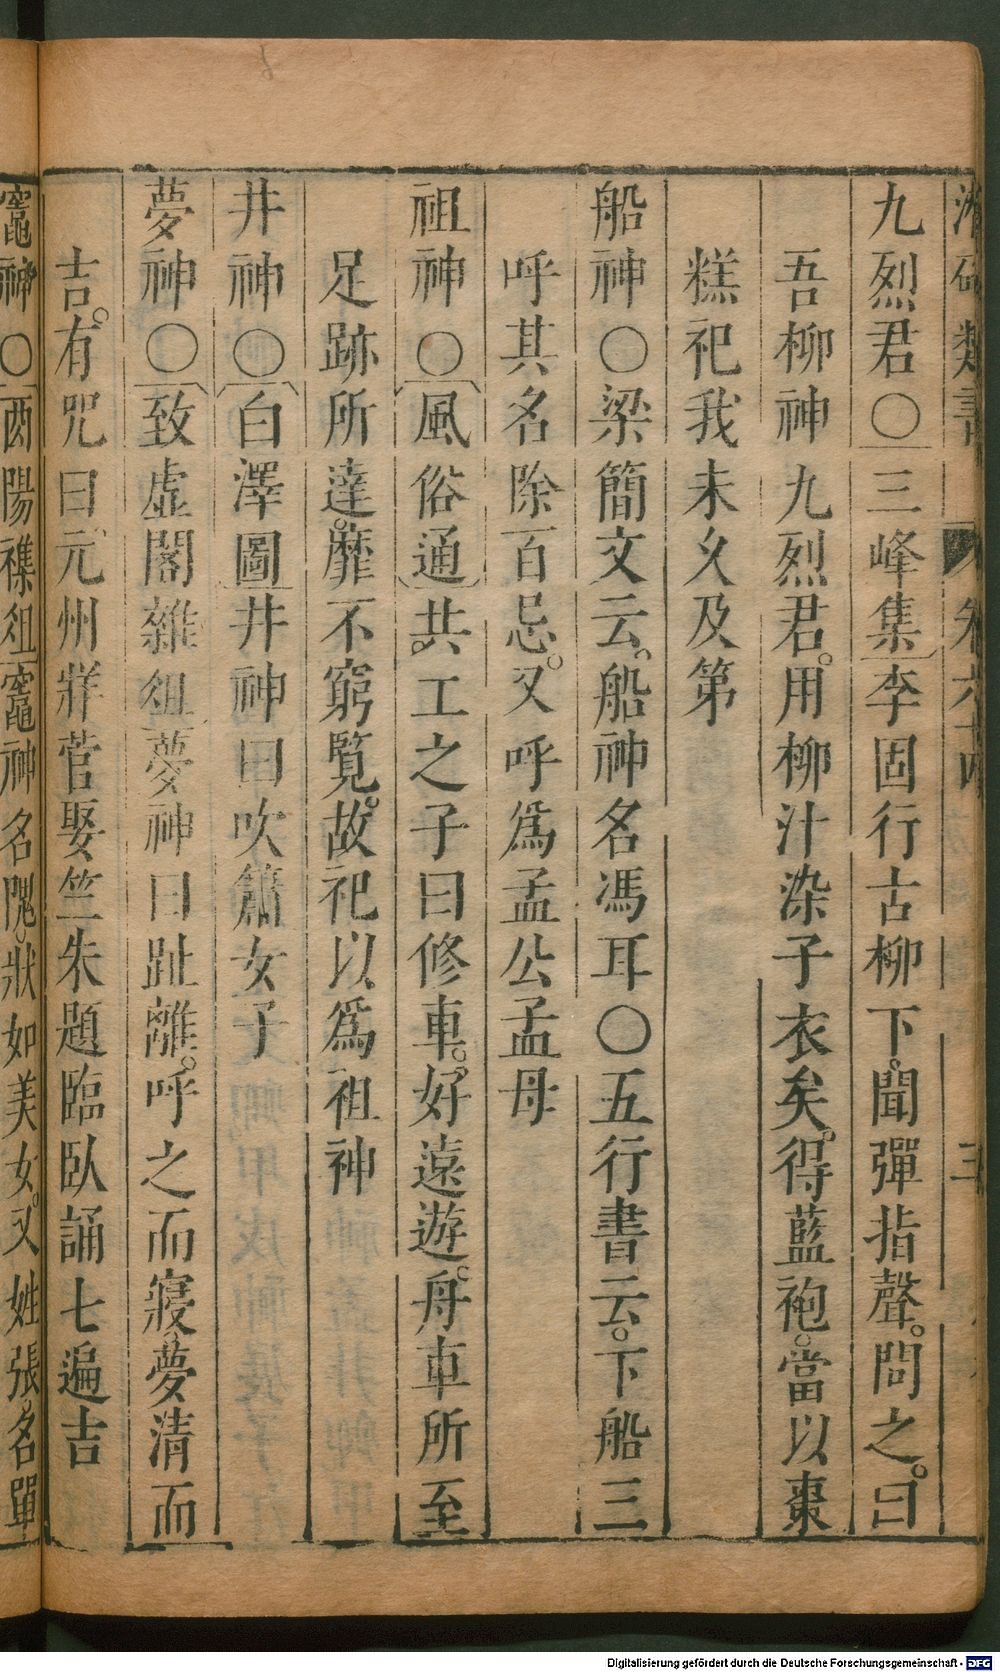 潛確類書 卷六十四 三
九烈君○三峰集李固行古柳下。聞彈指聲。問之。曰
吾柳神九烈君。用柳汁染子衣矣。得藍袍。當以棗
糕祀我未久及第
船神○梁簡文云。船神名馮耳○五行書云。下船三
呼其名除百忌。又呼爲孟公孟母
祖神○風俗通共。工之子曰修車。好遠遊。舟車所至
足跡所達。靡不窮覧。故祀以爲祖神
井神○白澤圖井神曰吹簫女子
夢神○致虛閣雜俎夢神曰趾離。呼之而寢。夢清而
吉。有咒曰元州牂菅娶竺米題臨臥誦七遍吉
竈神○酉陽襍俎竈神名隗。狀如美女。又姓張。名單
Digitalisierung gefördert durch die Deutsche Forschungsgemeinschaft - DFG